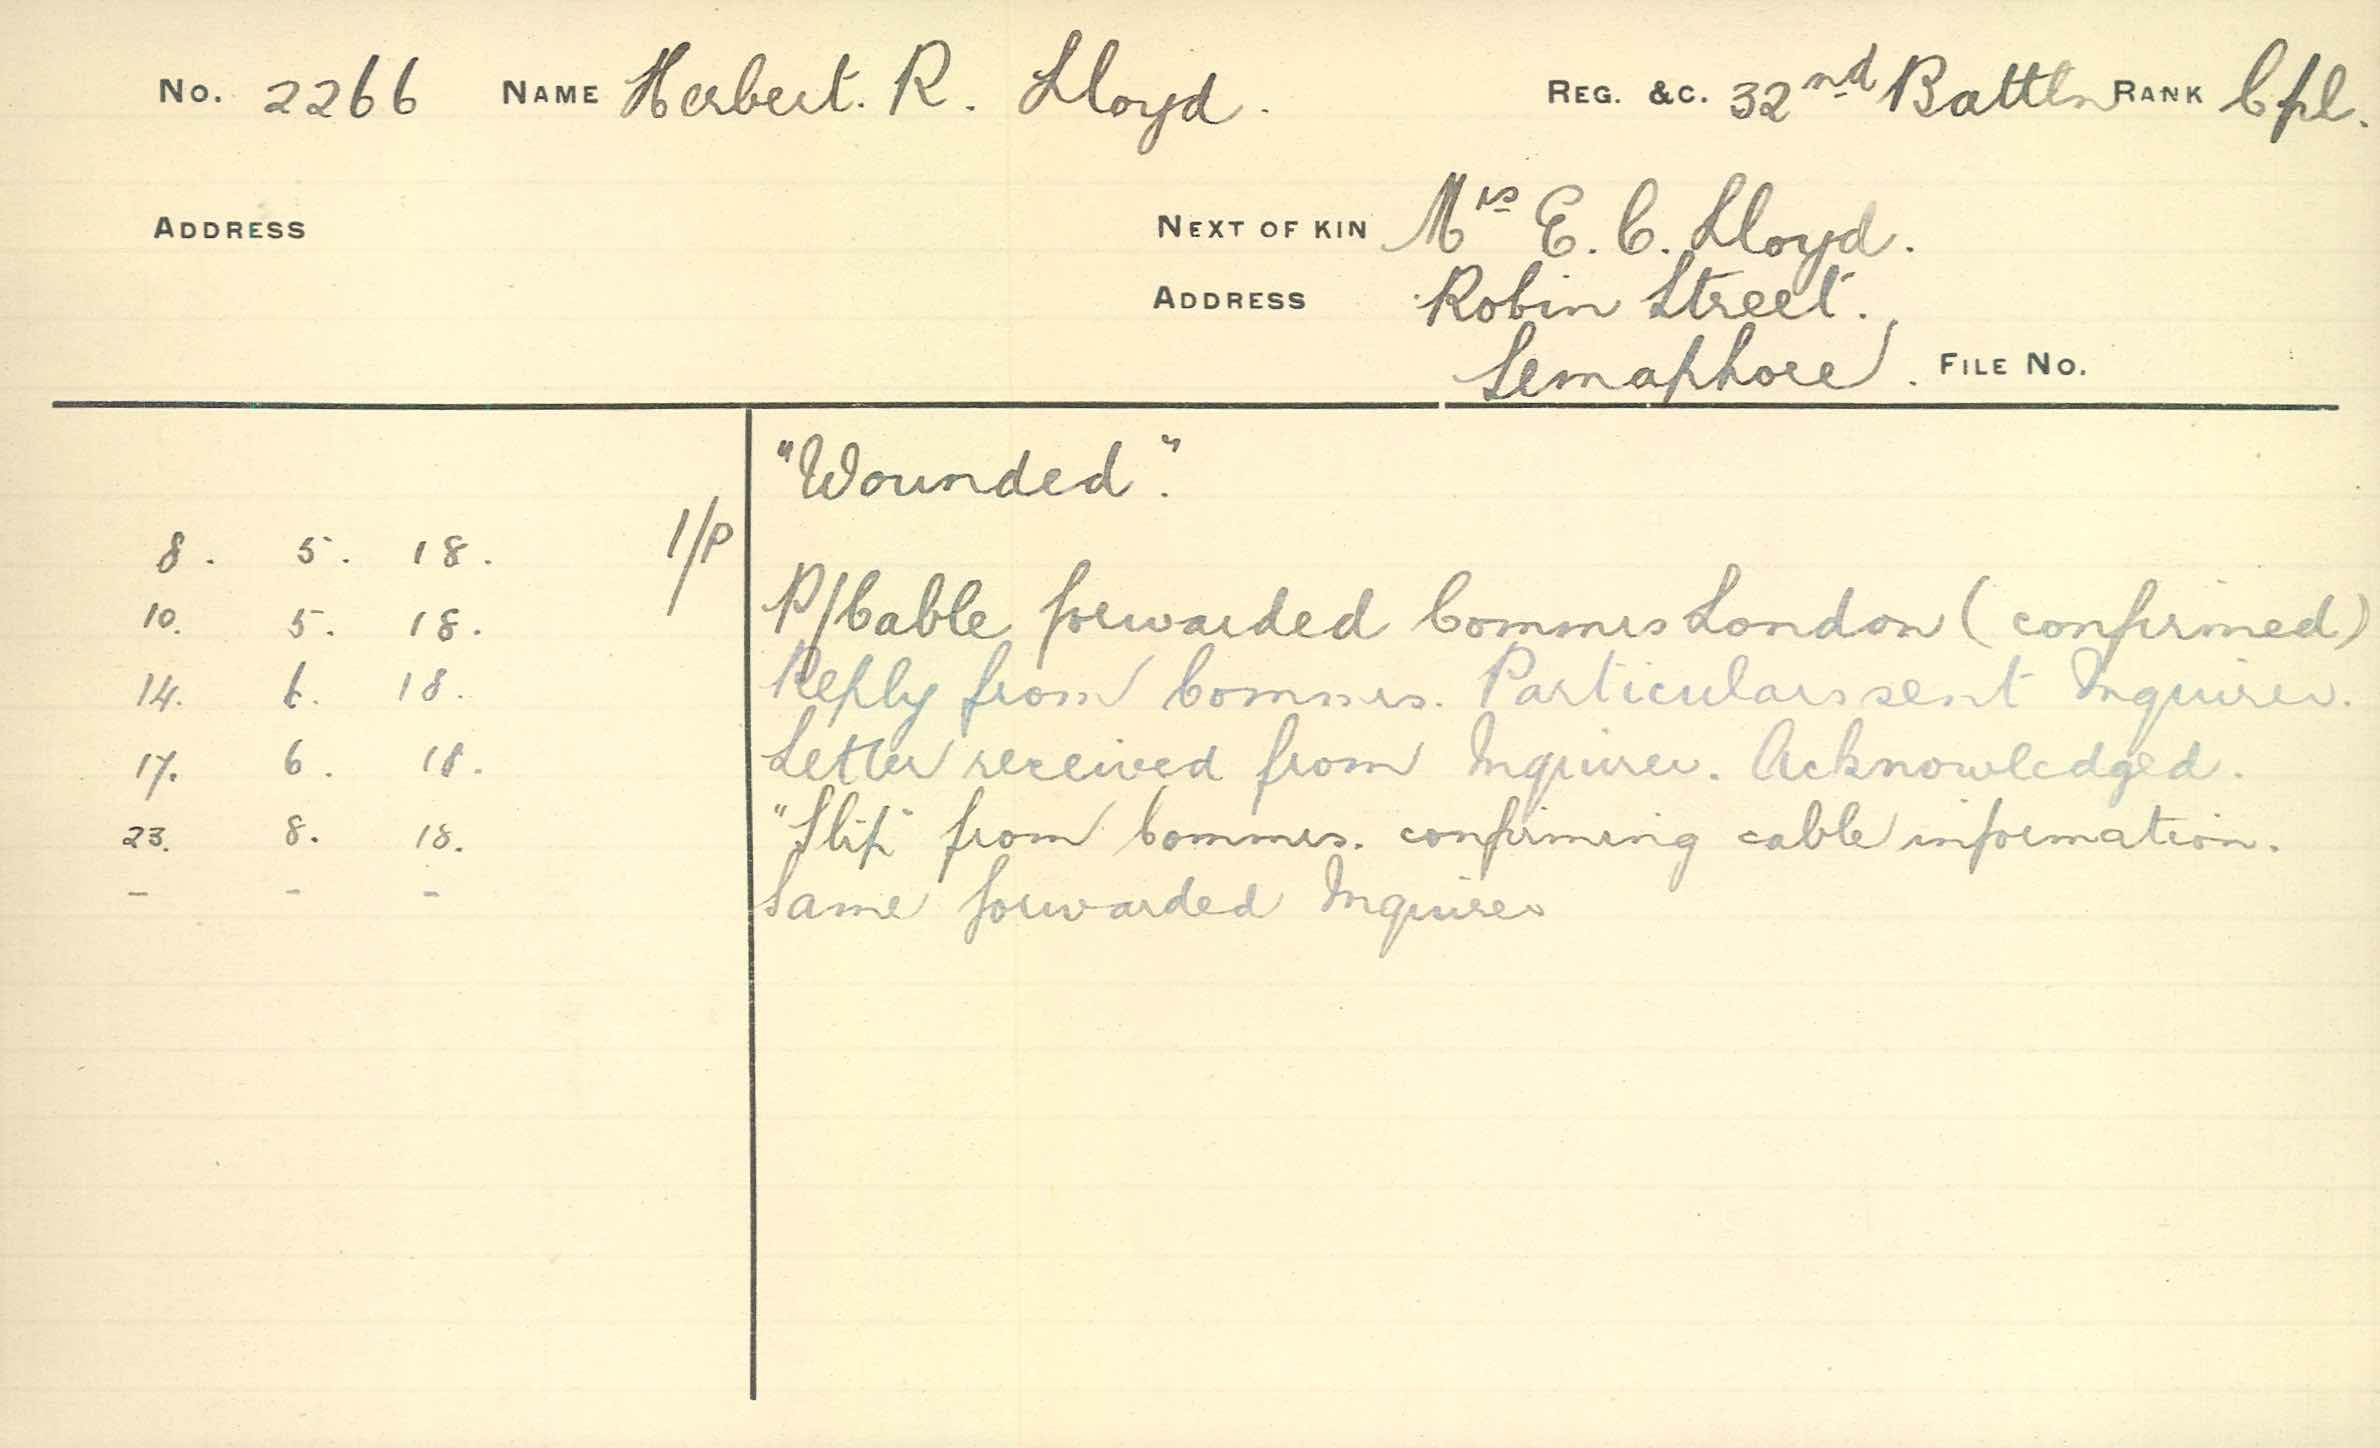 No. 2266 NAME Herbert. R. Lloyd. REG. &C. 32nd Battln RANK Cpl.
ADDRESS NEXT OF KIN Mrs E. C. Lloyd.
ADDRESS Robin Street.
Semaphore. FILE No.
"Wounded".
8. 5. 18. 1/P
10. 5. 18. P/Cable forwarded Commrs London (confirmed)
14. 6. 18. Reply from Commrs. Particulars sent Inquirer.
17. 6. 18. Letter received from Inquirer. Acknowledged.
23. 8. 18. "Slip" from Commrs. confirming cable information.
- - - Same forwarded Inquirer